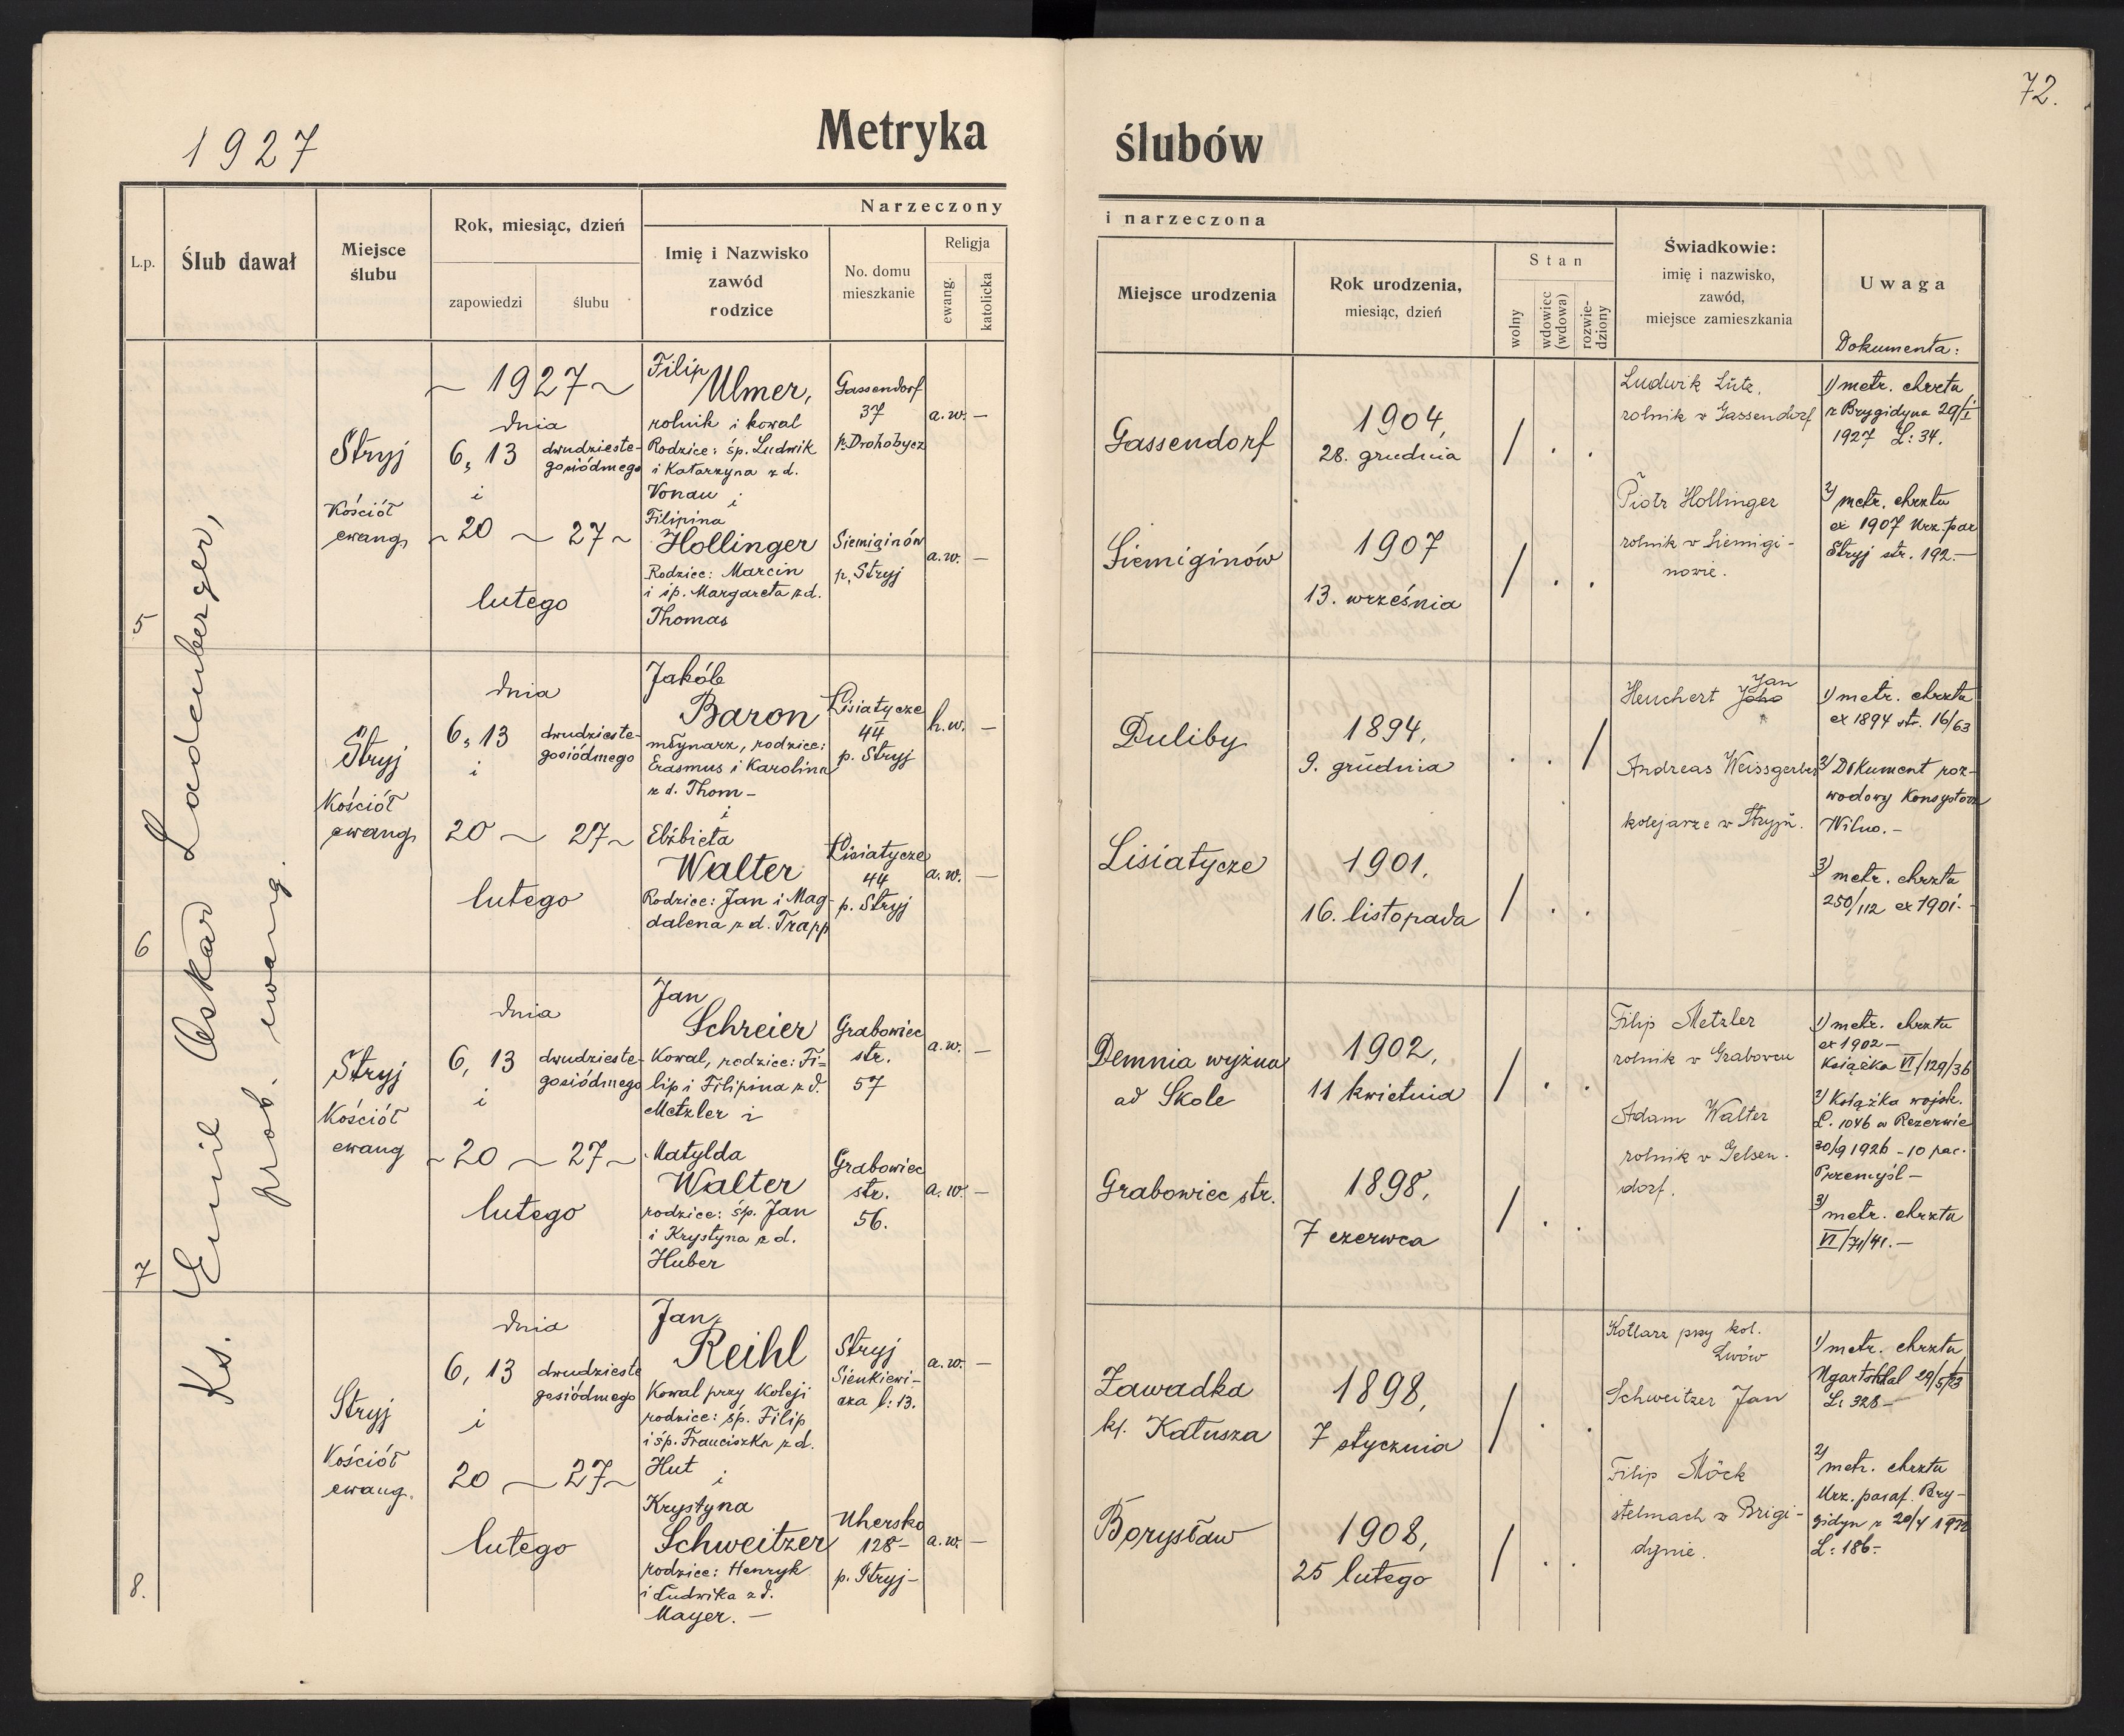 72.
1927
Metryka
ślubów
L.p.
Ślub dawał
Miejsce
ślubu
Rok, miesiąc, dzień
zapowiedzi
ślubu
Narzeczony
Imię i Nazwisko
zawód
rodzice
No. domu
mieszkanie
Religja
ewang.
katolicka
i narzeczona
Miejsce urodzenia
Rok urodzenia,
miesiąc, dzień
Stan
wolny
wdowiec
(wdowa)
rozwie-
dziony
Świadkowie:
imię i nazwisko,
zawód,
miejsce zamieszkania
Uwaga
Dokumenta:
Ks. Emil Oskar Ladenberger,
prob. ewang.
5
Stryj
Kościół
ewang,
~ 1927 ~
dnia
6, 13
i
~ 20 ~
dwudzieste-
gosiódmego
27 ~
lutego
Filip
Ulmer,
rolnik i kowal
Rodzice: śp. Ludwik
i Katarzyna z d.
Vonau i
Filipina
Hollinger
Rodzice: Marcin
i śp. Margareta z d.
Thomas
Gassendorf
37
p. Drohobycz
a. w. —
Siemiginów
p. Stryj
a. w. —
Gassendorf
1904,
28. grudnia
/ . .
Siemiginów
1907
13. września
/ . .
Ludwik Lütz,
rolnik w Gassendorf
Piotr Hollinger
rolnik w Siemigi-
nowie.
1) metr. chrztu
z Brygidyna 29/I
1927 L: 34.
2) metr. chrztu
ex 1907 Urz. par
Stryj str. 192.—
6
Stryj
Kościół
ewang,
dnia
6, 13
i
20 ~
dwudzieste-
gosiódmego
27 ~
lutego
Jakób
Baron
młynarz, rodzice:
Erasmus i Karolina
z d. Thom —
i
Elżbieta
Walter
Rodzice: Jan i Mag-
dalena z d. Trapp
Lisiatycze
44
p. Stryj
h. w. —
Lisiatycze
44
p. Stryj
a. w. —
Duliby
1894,
9. grudnia
. . /
Lisiatycze
1901,
16. listopada
/ . .
Jan
Heuchert
Andreas Weissgerber
kolejarze w Stryju.
1) metr. chrztu
ex 1894 str. 16/63
2) Dokument roz-
wodowy Konsystorz
Wilno. —
3) metr. chrztu
250/112 ex 1901. -
7
Stryj
Kościół
ewang
dnia
6, 13
i
~ 20 ~
dwudzieste-
gosiódmego
27 ~
lutego
Jan
Schreier
Kowal, rodzice: Fi-
lip i Filipina z d.
Metzler i
Matylda
Walter
rodzice: śp. Jan
i Krystyna z d.
Huber
Grabowiec
str.
57
a. w. —
Grabowiec
str.
56.
a. w. —
Demnia wyżna
ad Skole
1902,
11 kwietnia
/ . .
Grabowiec str.
1898,
7 czerwca
/ . .
Filip Metzler
rolnik w Grabowcu
Adam Walter
rolnik w Gelsen-
dorf.
1) metr. chrztu
ex 1902 —
Książka VI/129/36
2) Książka wojsk.
L. 1046 w Rezerwie
30/9 1926 - 10 pac.
Przemyśl —
3) metr. chrztu
VI/71/41. —
8.
Stryj
Kościół
ewang.
dnia
6, 13
i
20 ~
dwudzieste
gosiódmego
27 ~
lutego
Jan,
Reihl
Kowal przy Koleji
rodzice: śp. Filip
i śp. Franciszka z d.
Hut i
Krystyna
Schweitzer
rodzice: Henryk
i Ludwika z d.
Mayer. —
Stryj
Sienkiewi-
cza l: 13.
a. w. —
Uhersko
128 -
p. Stryj -
a. w. —
Zawadka
kł. Kałusza
1898,
7 stycznia
/ . .
Borysław
1908,
25 lutego
/ . .
Kotlarz przy kol.
Lwów
Schweitzer Jan
Filip Möck
stelmach w Brigi-
dynie.
1) metr. chrztu
Ugartsthal 29/5/23
L: 328 —
2) metr. chrztu
Urz. paraf. Bry-
gidyn z 20/4
L: 186 -